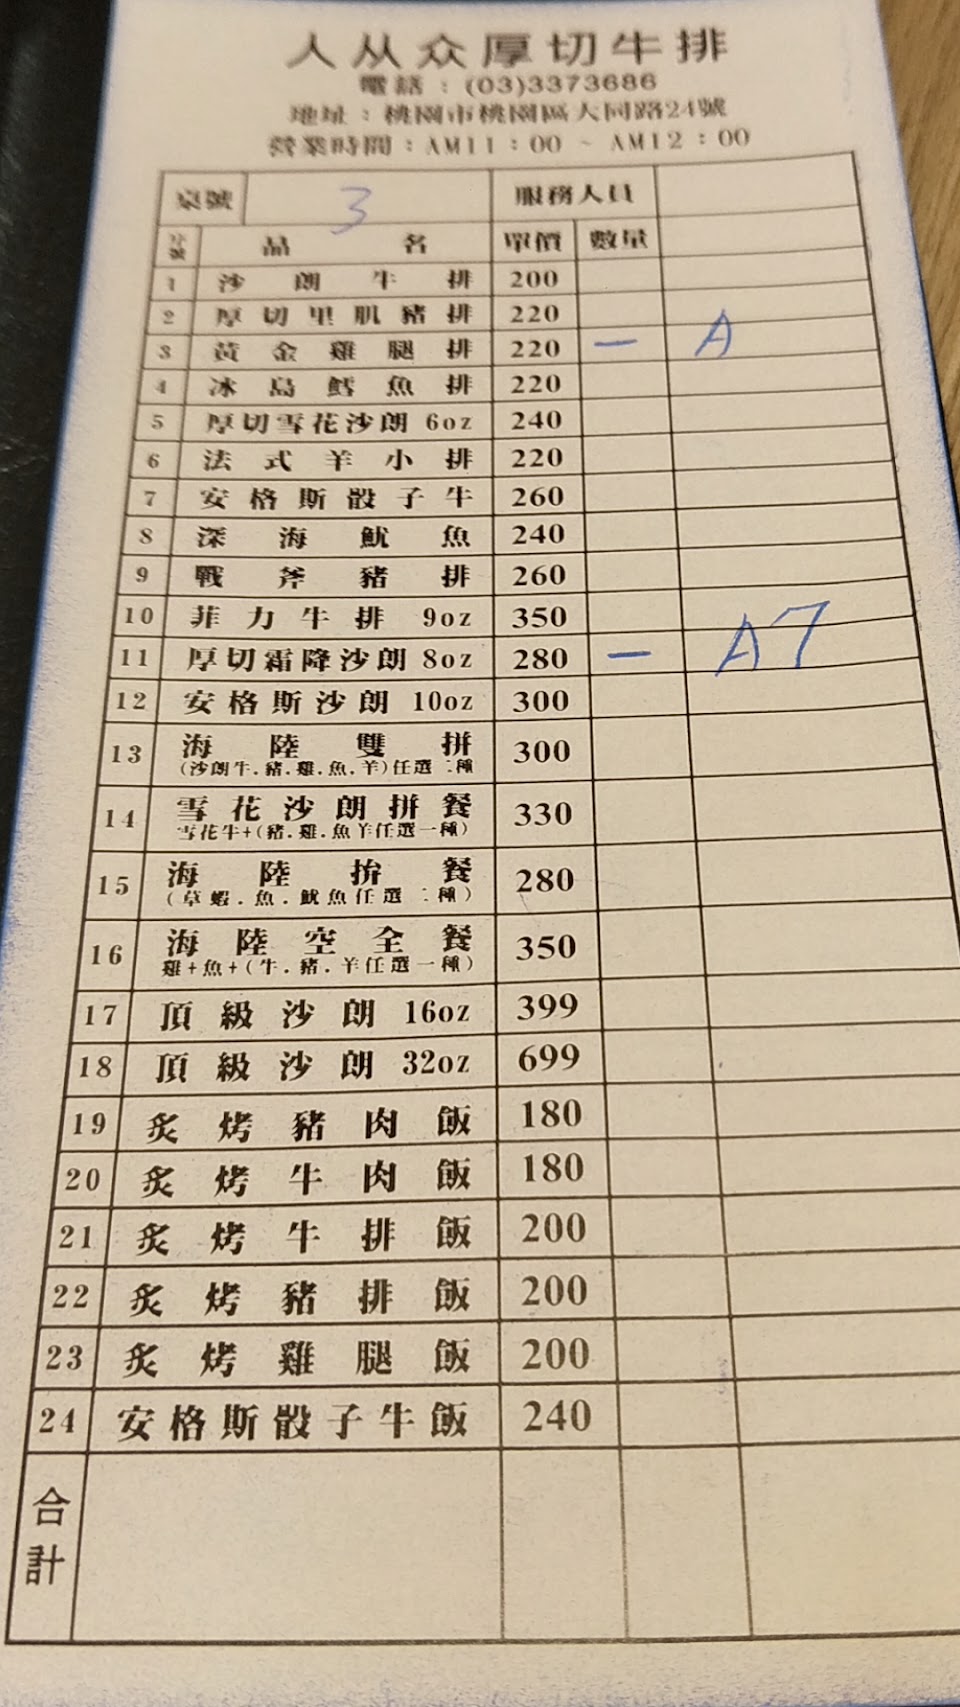 人从众厚切牛排
電話：(03)3373686
地址：桃園市桃園區大同路24號
營業時間：AM11：00 ~ AM12：00
桌號 3 服務人員
序號 品名 單價 數量
1 沙朗牛排 200
2 厚切里肌豬排 220
3 黃金雞腿排 220 一 A
4 冰島鱈魚排 220
5 厚切雪花沙朗 6oz 240
6 法式羊小排 220
7 安格斯骰子牛 260
8 深海魷魚 240
9 戰斧豬排 260
10 菲力牛排 9oz 350
11 厚切霜降沙朗 8oz 280 一 A7
12 安格斯沙朗 10oz 300
13 海陸雙拼 300
(沙朗牛.豬.雞.魚.羊)任選二種
14 雪花沙朗拼餐 330
雪花牛+(豬.雞.魚羊任選一種)
15 海陸拚餐 280
(草蝦.魚.魷魚任選二種)
16 海陸空全餐 350
雞+魚+(牛.豬.羊任選一種)
17 頂級沙朗 16oz 399
18 頂級沙朗 32oz 699
19 炙烤豬肉飯 180
20 炙烤牛肉飯 180
21 炙烤牛排飯 200
22 炙烤豬排飯 200
23 炙烤雞腿飯 200
24 安格斯骰子牛飯 240
合計